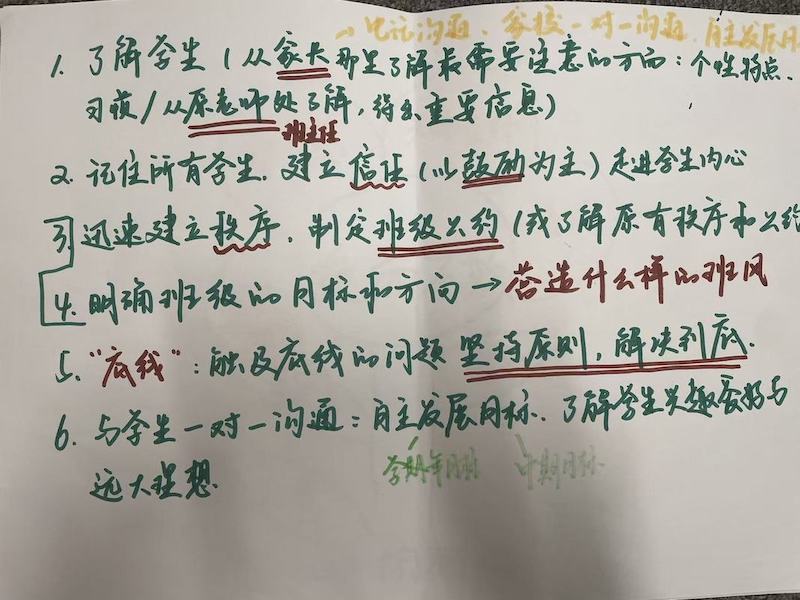 → 笔记沟通、家校一对一沟通、自主发展目
1. 了解学生(从家长那里了解最需要注意的方面:个性特点、
习惯/从原老师处了解,得出重要信息)
班主任
2. 记住所有学生,建立信任(以鼓励为主)走进学生内心
3. 迅速建立秩序,制定班级公约(或了解原有秩序和公约
4. 明确班级的目标和方向→营造什么样的班风
5. "底线":触及底线的问题坚持原则,解决到底.
6. 与学生一对一沟通:自主发展目标、了解学生兴趣爱好与
学期年目标 中期目标
远大理想.